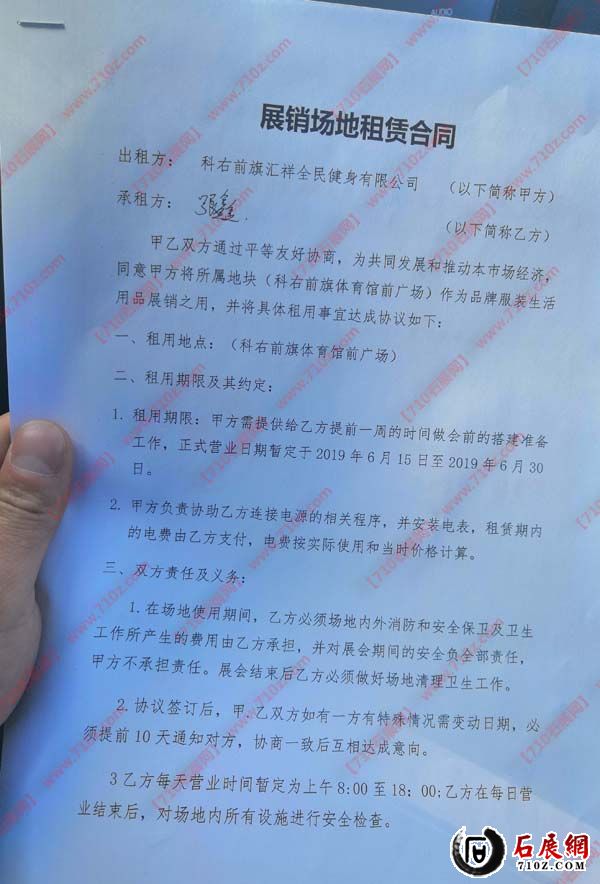 AUDIO
展销场地租赁合同
出租方： 科右前旗汇祥全民健身有限公司 （以下简称甲方）
承租方：
（以下简称乙方）
甲乙双方通过平等友好协商，为共同发展和推动本市场经济，
同意甲方将所属地块（科右前旗体育馆前广场）作为品牌服装生活
用品展销之用，并将具体租用事宜达成协议如下：
一、租用地点：（科右前旗体育馆前广场）
二、租用期限及其约定：
1. 租用期限：甲方需提供给乙方提前一周的时间做会前的搭建准备
工作，正式营业日期暂定于 2019 年 6 月 15 日至 2019 年 6 月 30
日。
2. 甲方负责协助乙方连接电源的相关程序，并安装电表，租赁期内
的电费由乙方支付，电费按实际使用和当时价格计算。
三、双方责任及义务：
1. 在场地使用期间，乙方必须场地内外消防和安全保卫及卫生
工作所产生的费用由乙方承担，并对展会期间的安全负全部责任，
甲方不承担责任。展会结束后乙方必须做好场地清理卫生工作。
2. 协议签订后，甲·乙双方如有一方有特殊情况需变动日期，必
须提前 10 天通知对方，协商一致后互相达成意向。
3 乙方每天营业时间暂定为上午 8:00 至 18：00;乙方在每日营
业结束后，对场地内所有设施进行安全检查。
【710石展网】
www.710z.com
石展網
710Z.COM